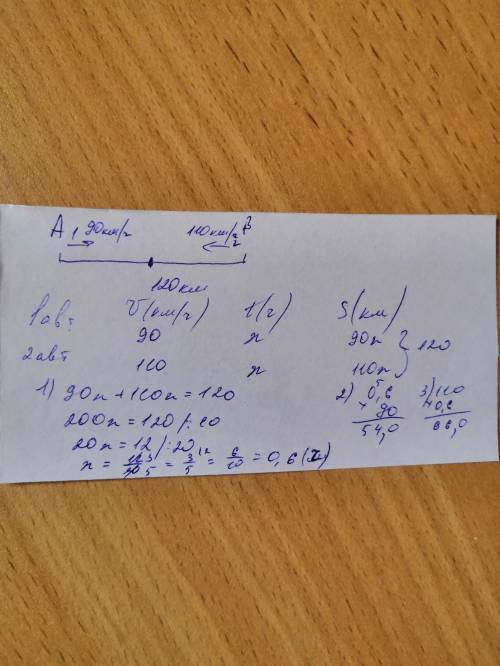 A 1 90км/ч 110км/ч 2 В
120км
v(км/ч) t(ч) S(км)
1авт 90 x 90x
2авт 110 x 110x } 120
1) 90x + 110x = 120
200x = 120 /:10
20x = 12 /:20
x = 12/20 = 3/5 = 6/10 = 0,6 (ч)
2) 0,6
× 90
54,0
3) 110
× 0,6
66,0